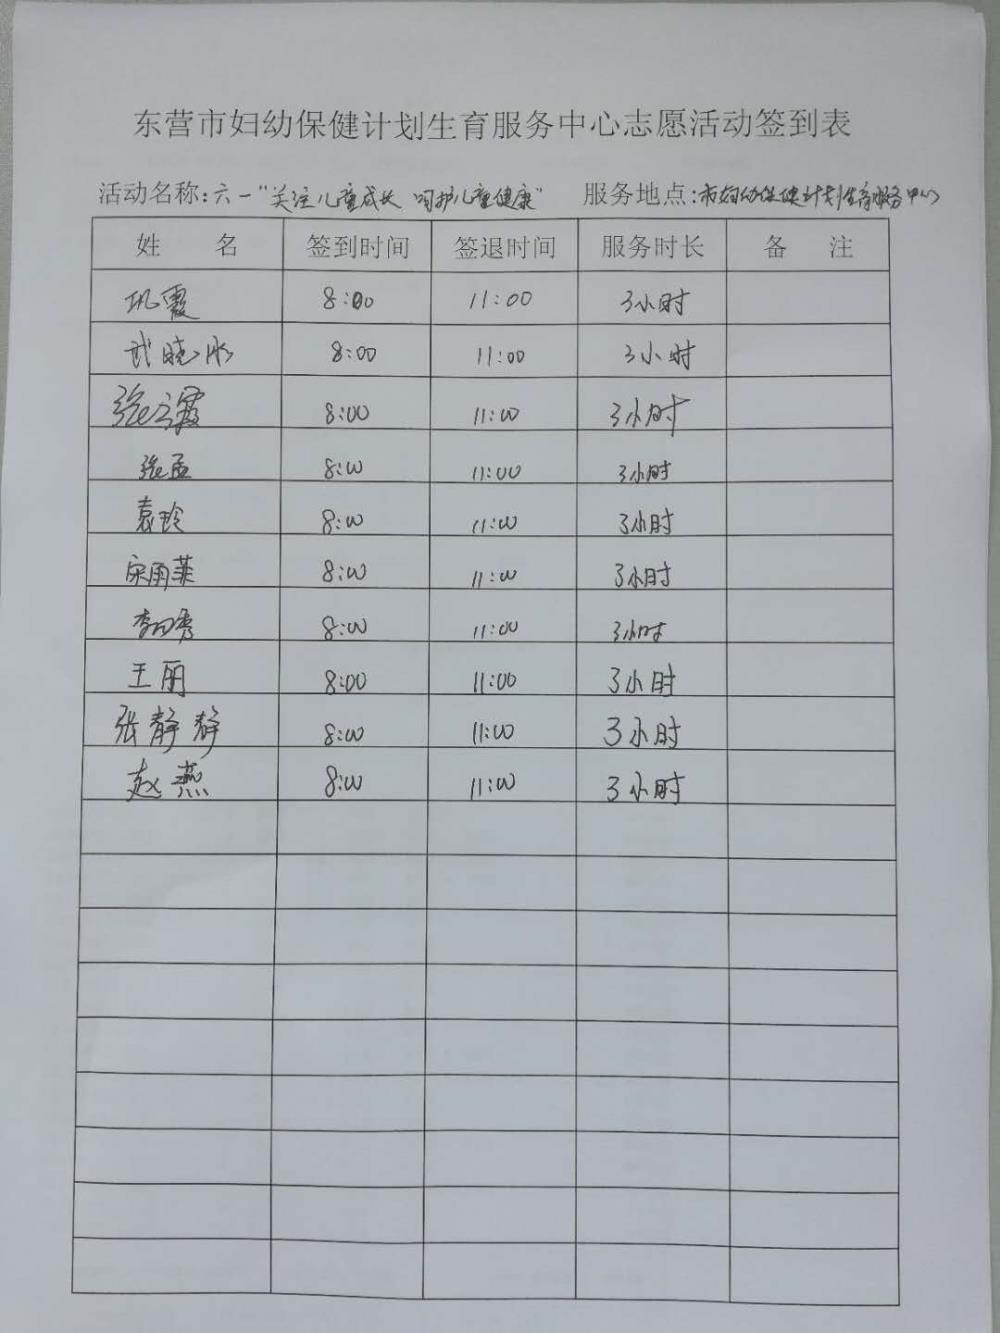 东营市妇幼保健计划生育服务中心志愿活动签到表
活动名称:六一"关注儿童成长 呵护儿童健康" 服务地点:市妇幼保健计划生育服务中心
姓 名 签到时间 签退时间 服务时长 备 注
巩霞 8:00 11:00 3小时
武晓冰 8:00 11:00 3小时
张云霞 8:00 11:00 3小时
张孟 8:00 11:00 3小时
袁玲 8:00 11:00 3小时
宋雨菲 8:00 11:00 3小时
李 秀 8:00 11:00 3小时
王丽 8:00 11:00 3小时
张静静 8:00 11:00 3小时
赵燕 8:00 11:00 3小时